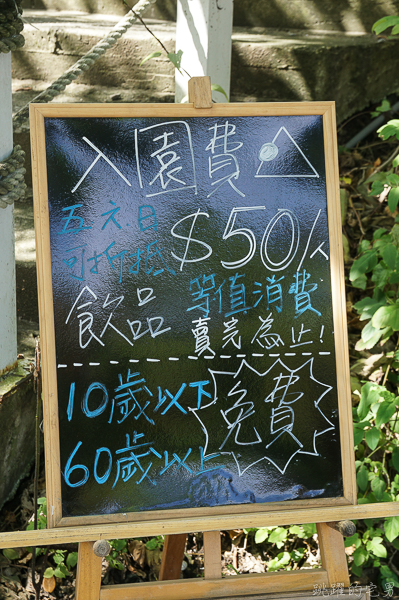 入園費
五六日
可折抵
$50/人
飲品
等值消費
賣完為止!
10歲以下
60歲以上
免費
跳躍的宅男